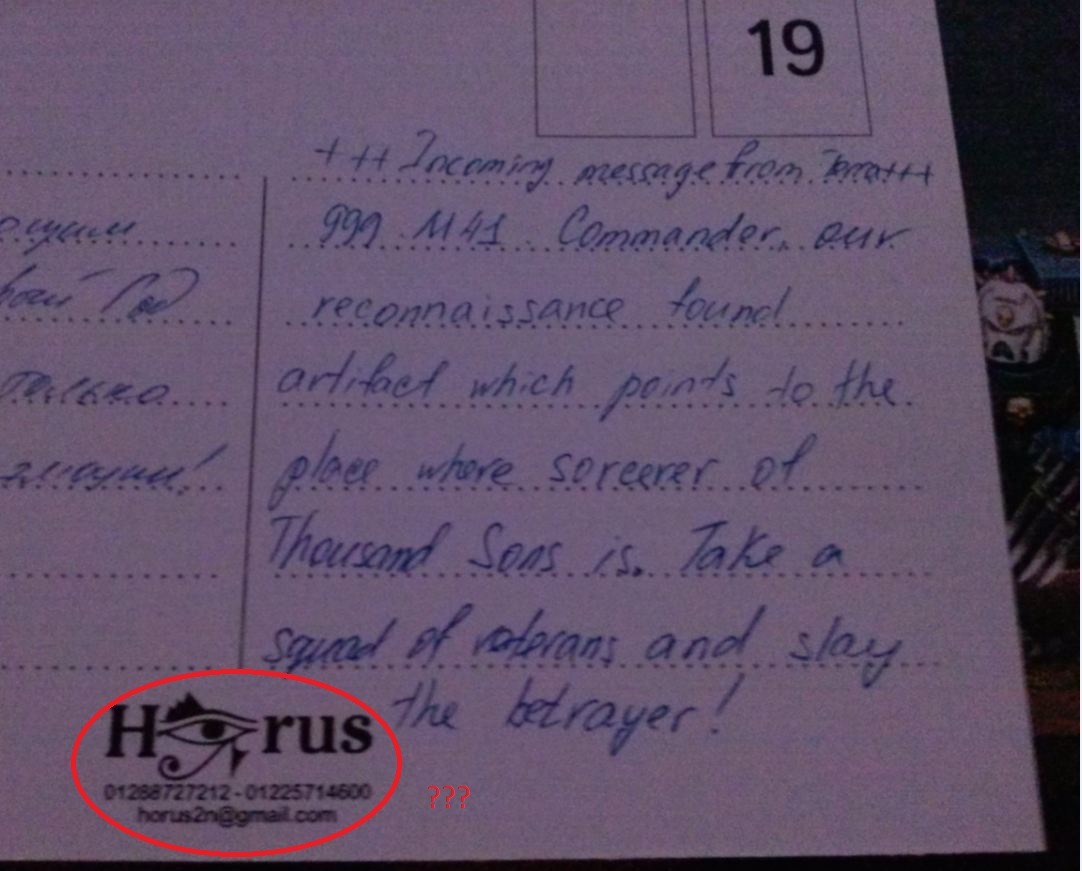 19
+++ Incoming message from Terra+++
999 M41. Commander, our
reconnaissance found
artifact which points to the
place where sorcerer of
Thousand Sons is. Take a
squad of veterans and slay
the betrayer!
Год
только
Horus
01288727212 - 01225714600
horus2n@gmail.com
???